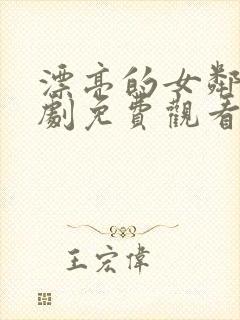 漂亮的女鄰
劇免費觀看
王宏偉